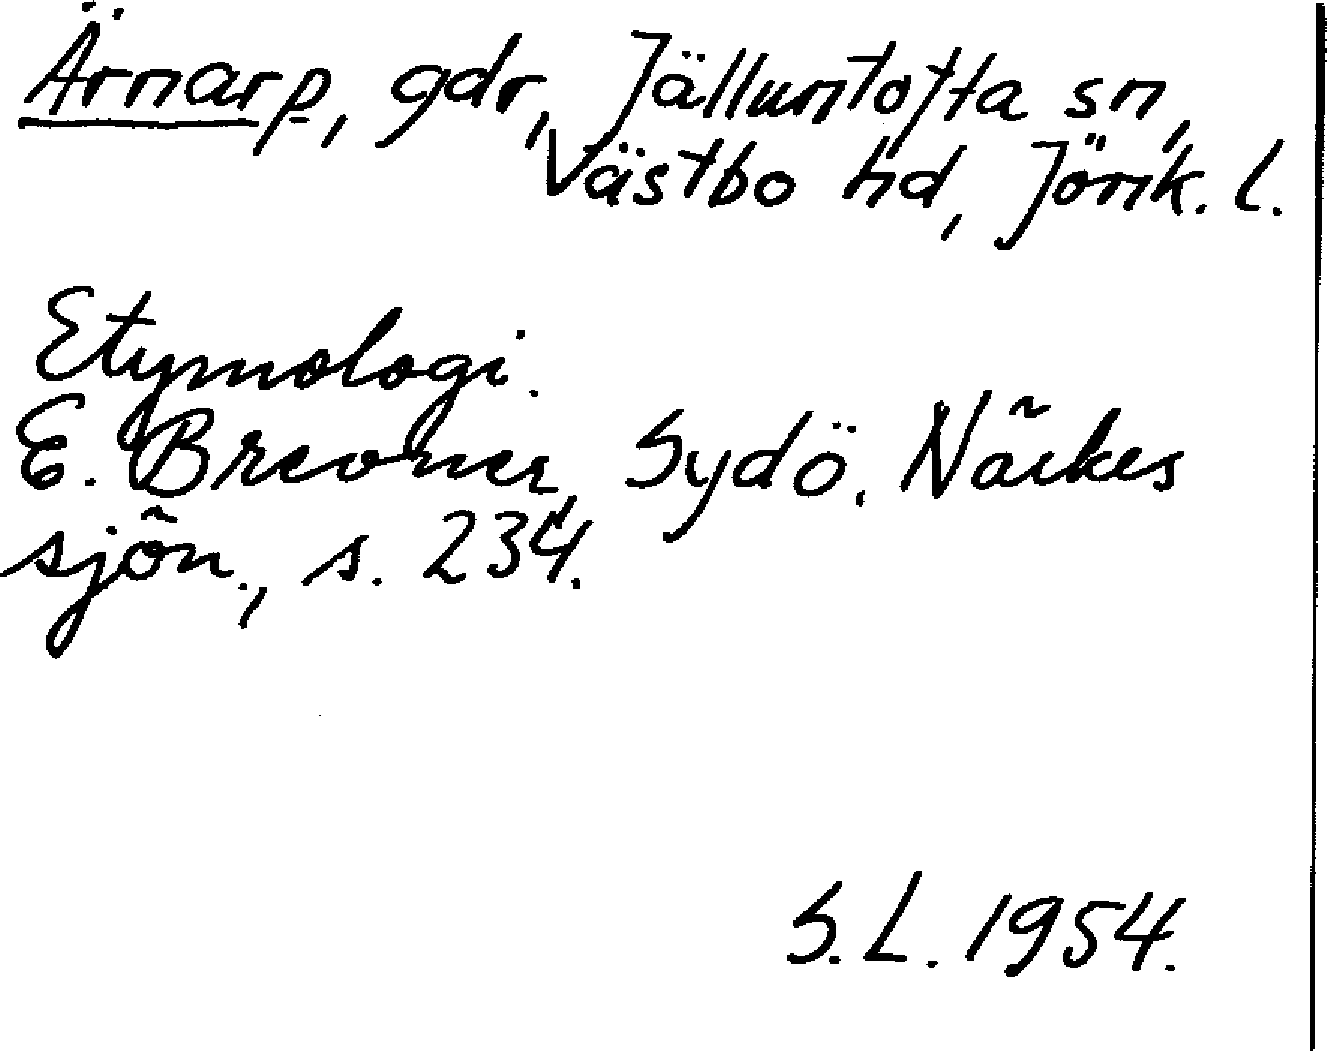 Ärnarp, gdr, Jälluntofta sn,
Västbo hd, Jönk. l.
Etymologi.
E. Brevner, Sydö. Närkes
sjön., s. 234.
S. L. 1954.